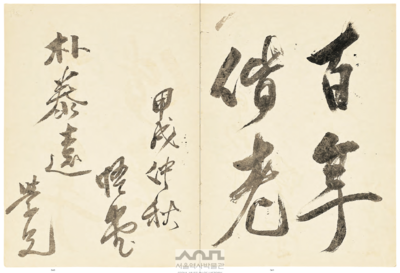 百年
偕老
甲戌仲秋
朴泰遠
學兄
서울역사박물관